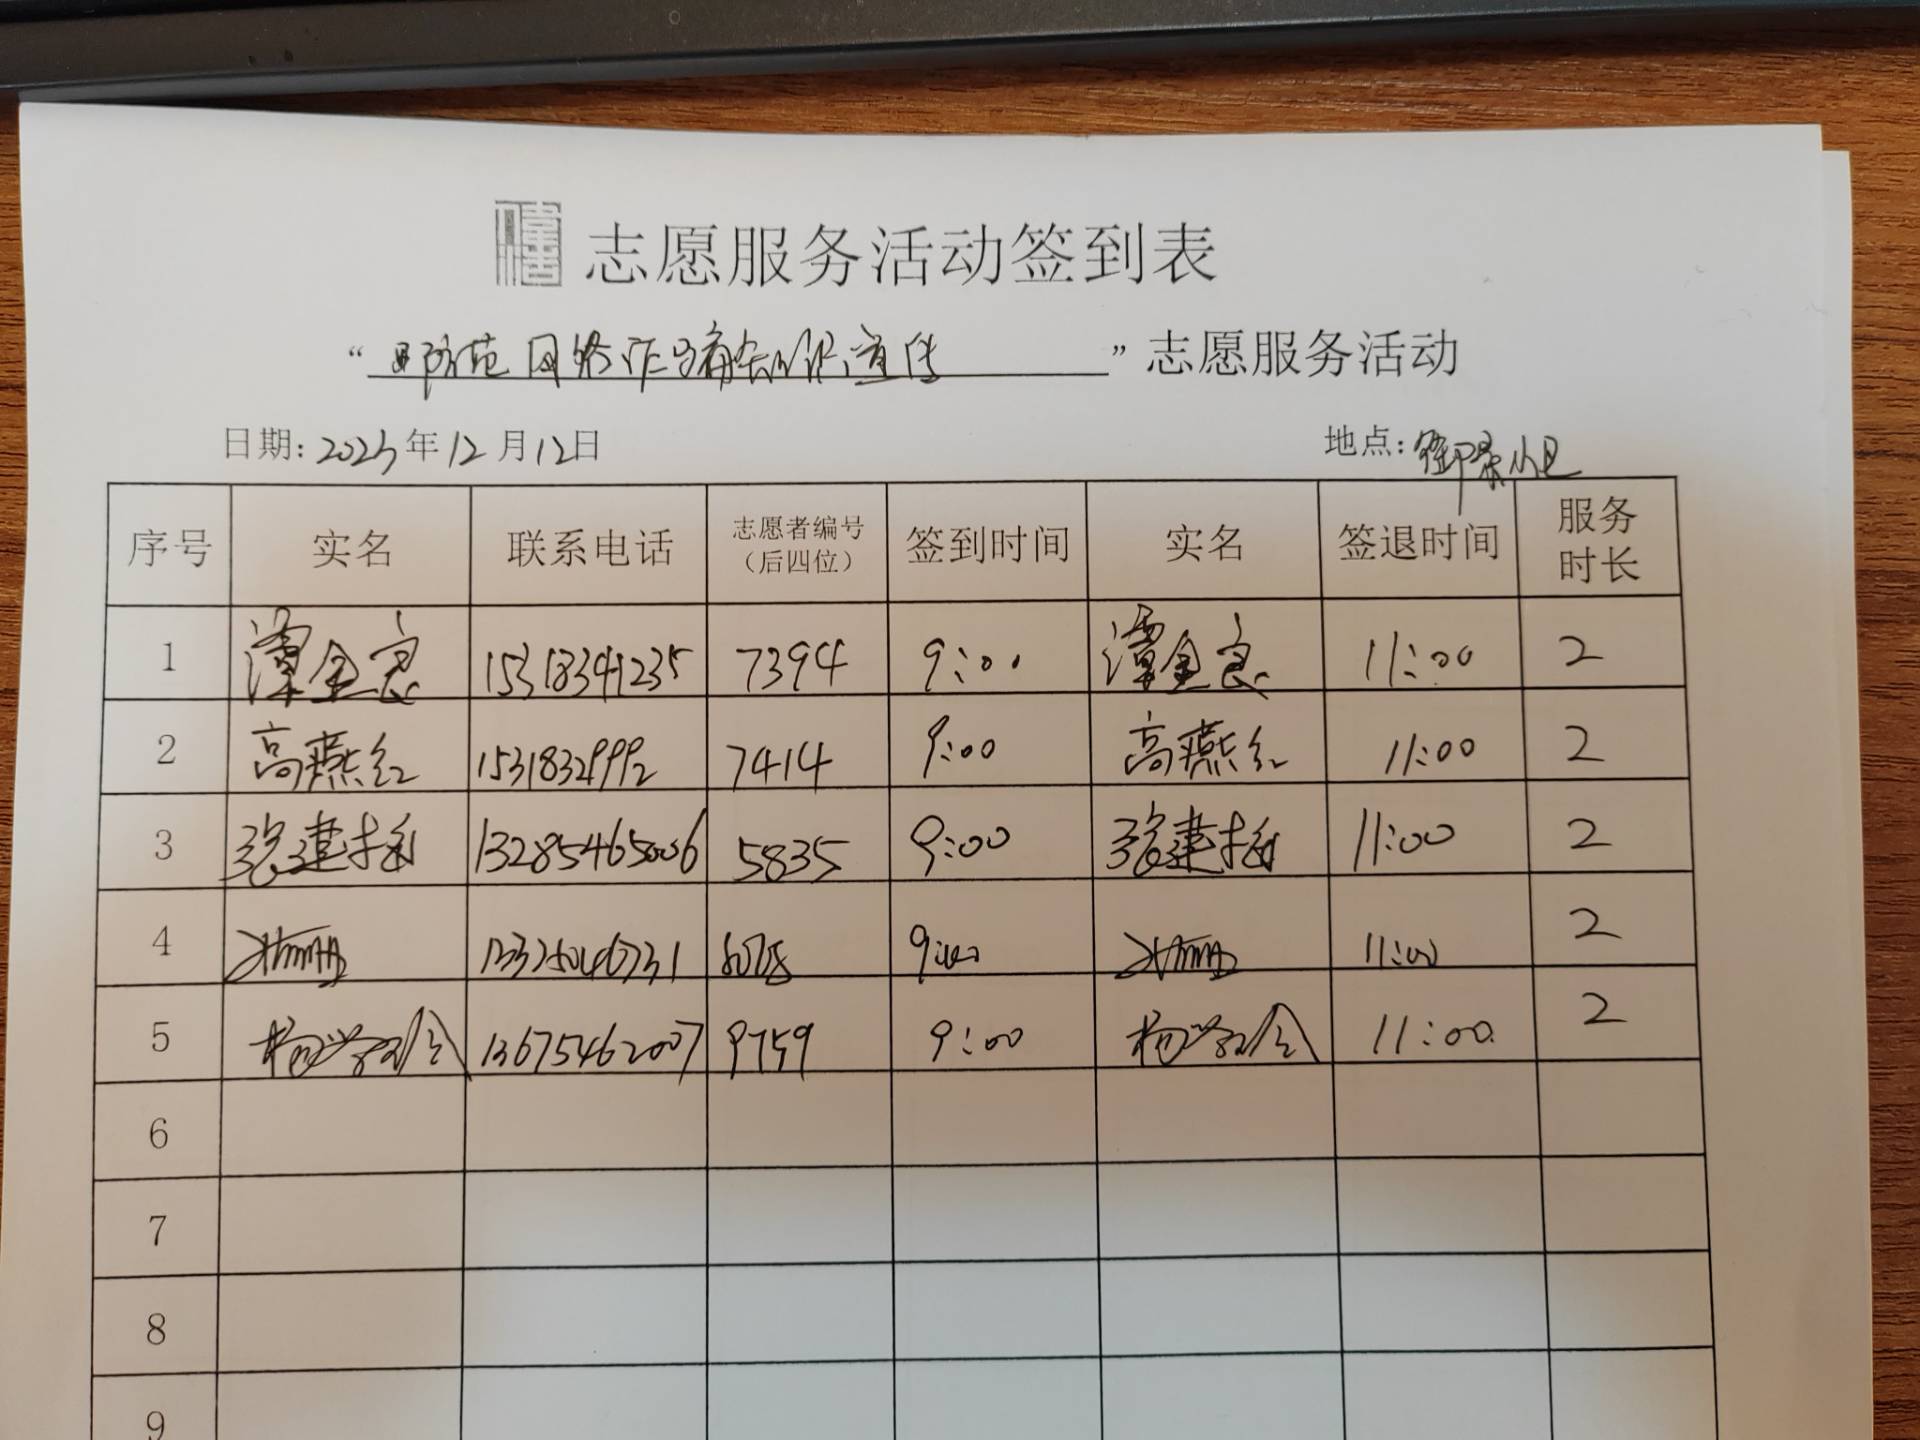 志愿服务活动签到表
“防范网络诈骗知识宣传”志愿服务活动
日期: 2023年12月12日 地点: 御景小区
序号 实名 联系电话 志愿者编号（后四位） 签到时间 实名 签退时间 服务时长
1 谭金良 15318341235 7394 9:00 谭金良 11:00 2
2 高燕红 15318329992 7414 9:00 高燕红 11:00 2
3 张建梅 13285465006 5835 9:00 张建梅 11:00 2
4 9:00 11:00 2
5 13675462007 9759 9:00 11:00 2
6
7
8
9